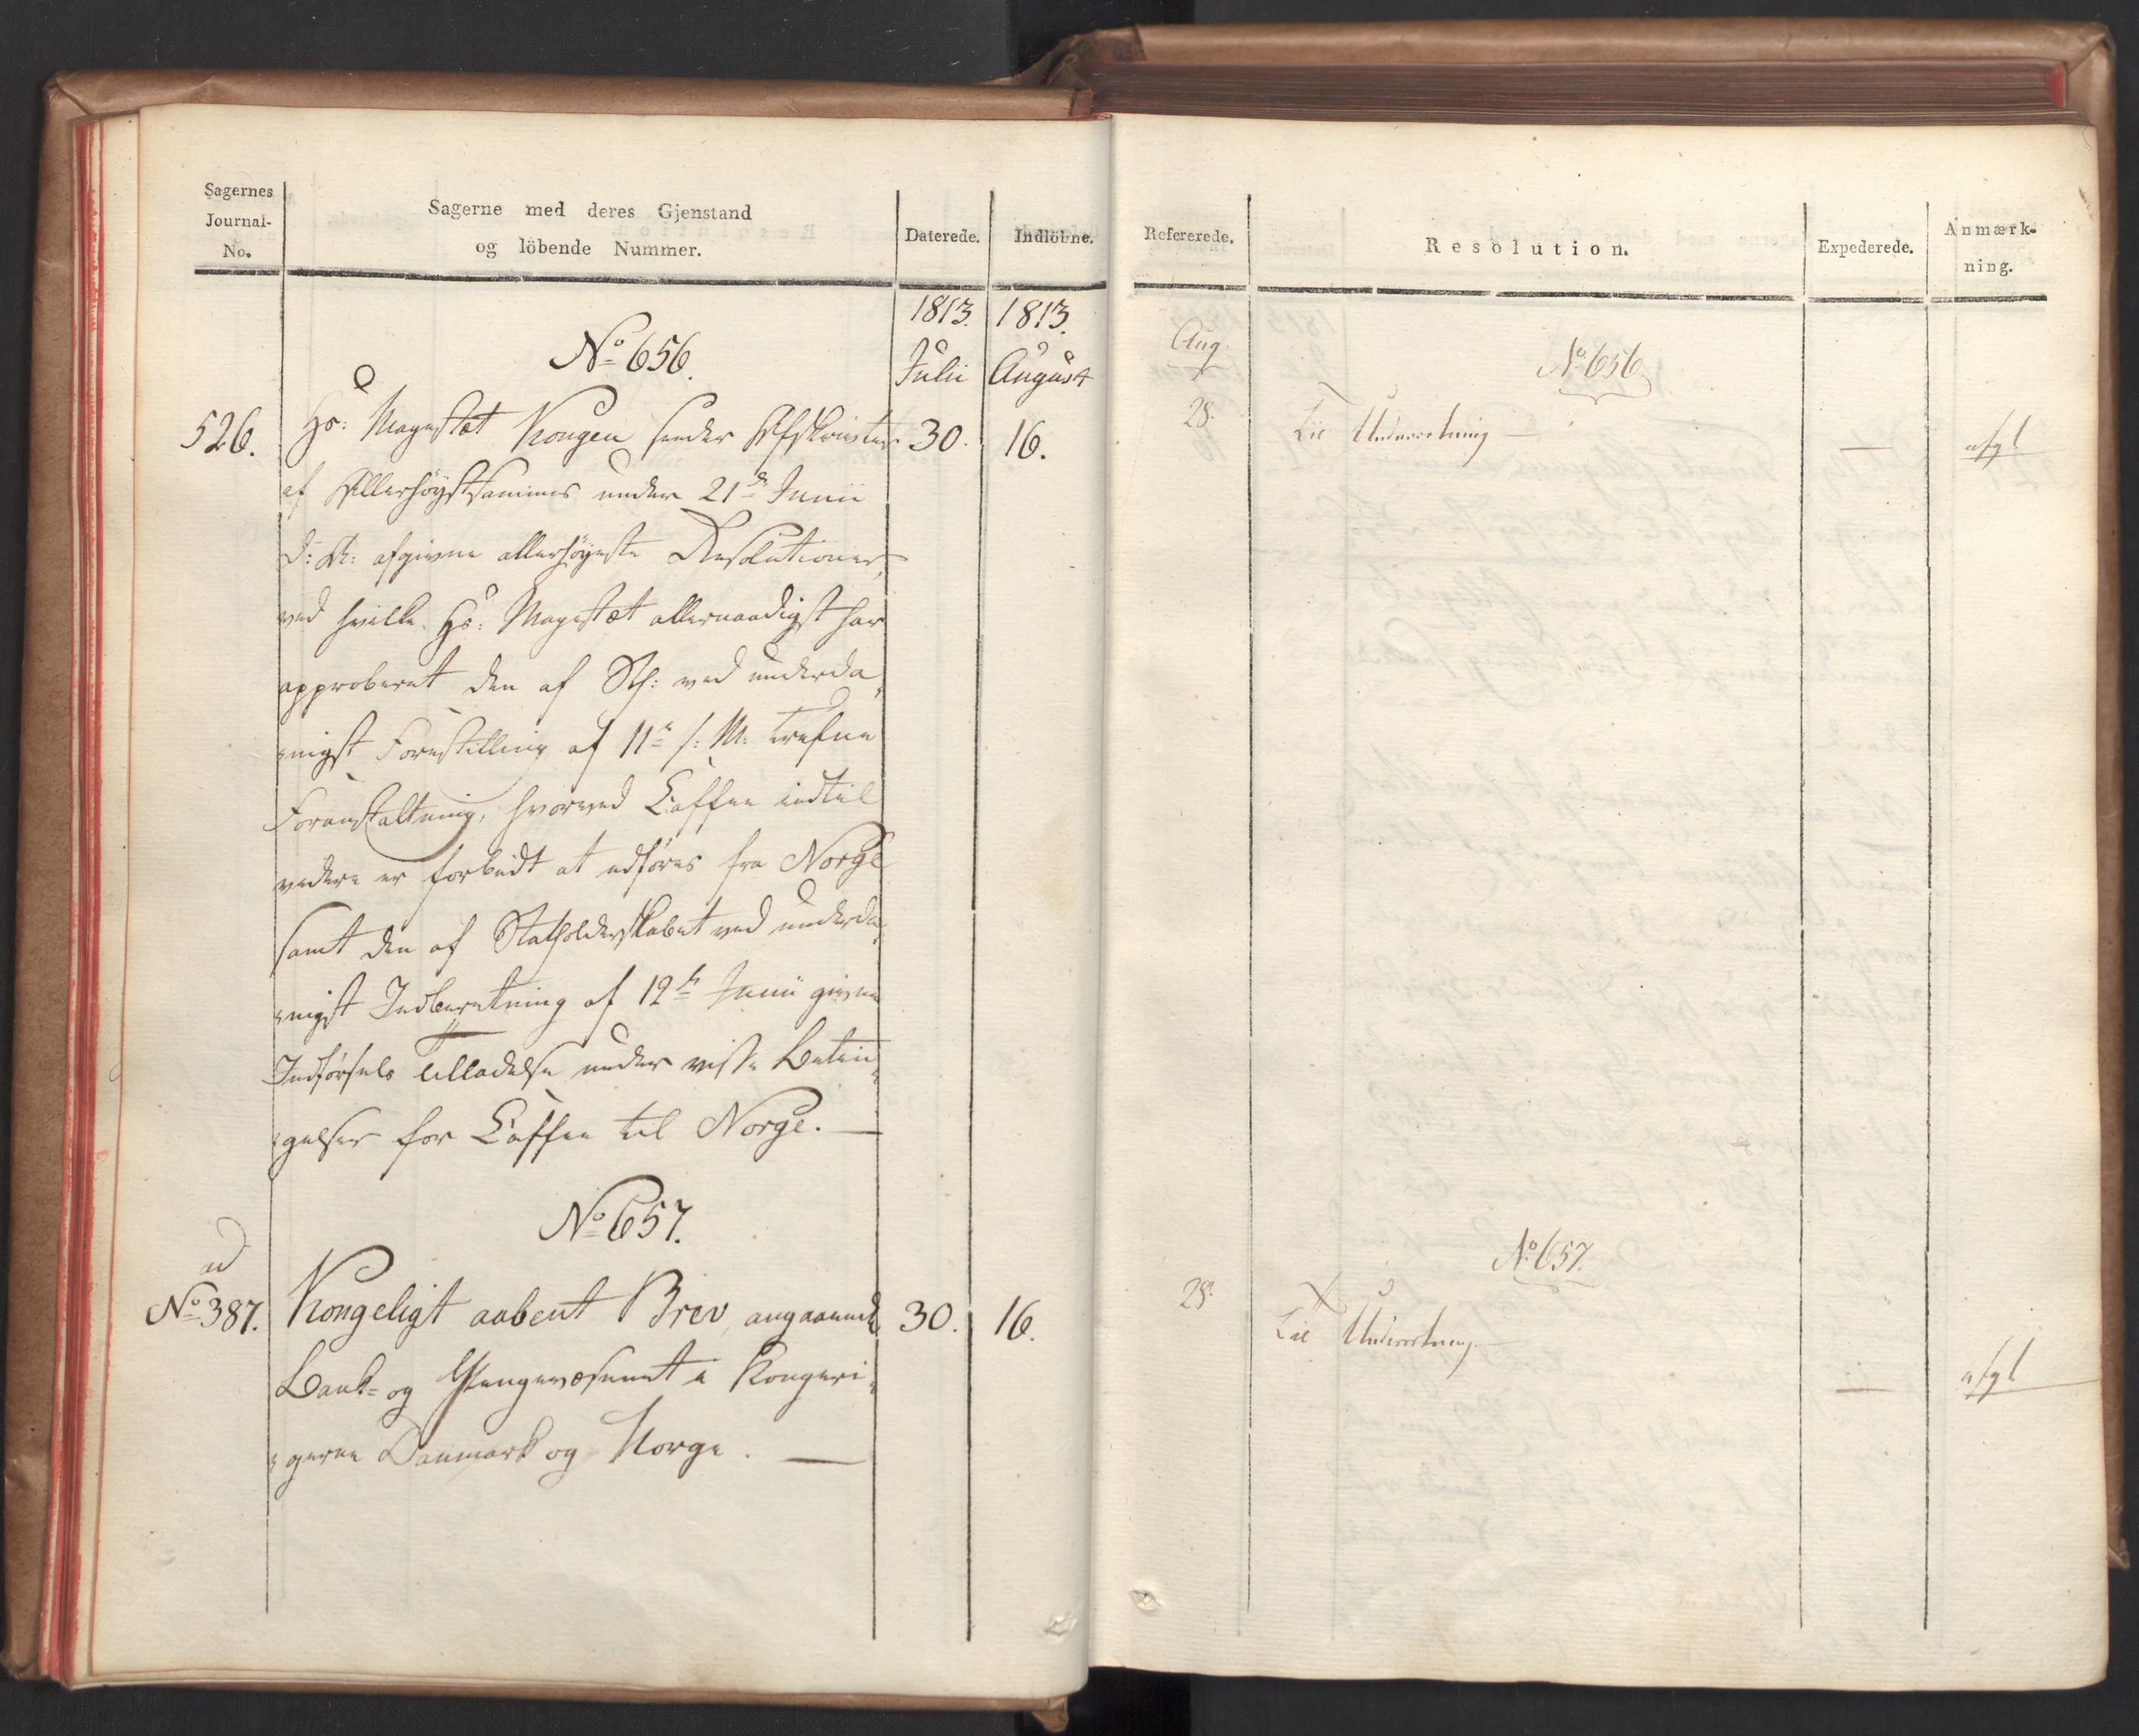 Sagernes
Journal-
No.
Sagerne med deres Gjenstand
og löbende Nummer.
Daterede.
Indlöbne.
1813.
1813.
Julii
August
No 656.
526.
Hs: Mayestæt Kongen sender Afskrifter
30.
16.
af Allerhöystsammes under 21de Junii
d: A: afgivne allerhöyeste Resolutioner,
ved hvilke Hs: Mayestæt allernaadigst har
approberet den af Sth: ved underda
nigst Forestilling af 11te s: M: trefne
Foranstaltning, hvorved Caffee indtil
videre er forbudt at udföres fra Norge
samt den af Statholderskabet ved underda
nigst Indberetning af 12te Junii givne
Indförsels Tilladelse under visse Betin
gelser for Caffee til Norge. —
No 657.
ad
No 387.
Kongeligt aabent Brev, angaaende
30.
16.
Bank- og Pengevæsenet i Kongeri
gerne Danmark og Norge. —
Refererede.
Resolution.
Expederede.
Anmærk-
ning.
Aug.
No 656
28.
Til Underretning —
—
afgl
No 657.
28.
Til Underretning. —
—
afgl